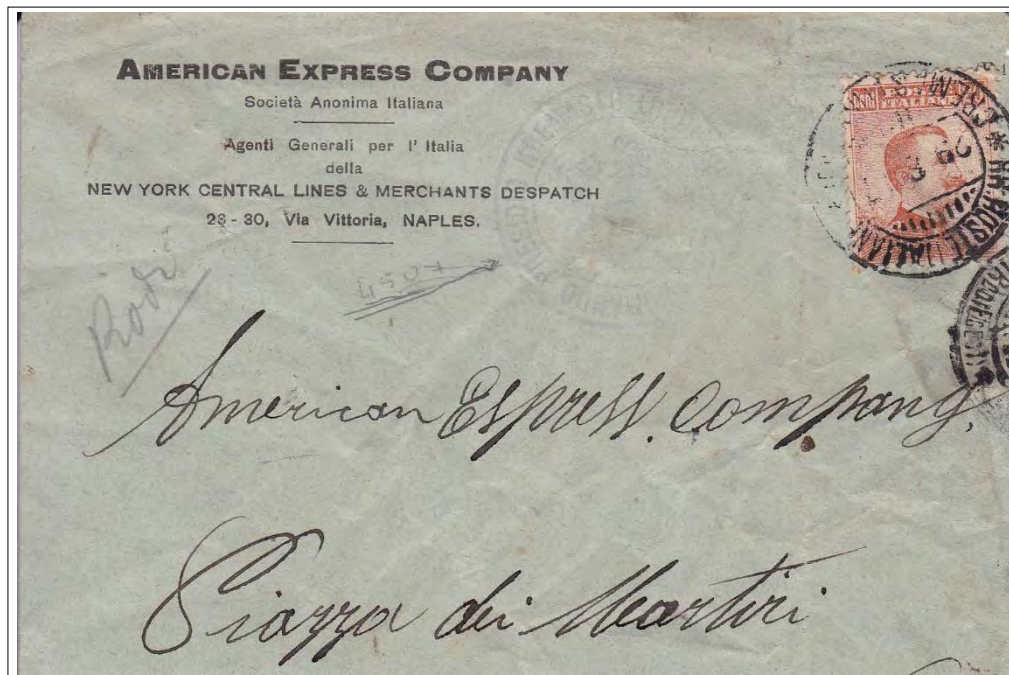 AMERICAN EXPRESS COMPANY
Società Anonima Italiana
Agenti Generali per l' Italia
della
NEW YORK CENTRAL LINES & MERCHANTS DESPATCH
28 - 30, Via Vittoria, NAPLES.
POSTE
ITALIANE
RR. POSTE ITALIANE
Rodi
American Espress. Company,
Piazza dei Martiri